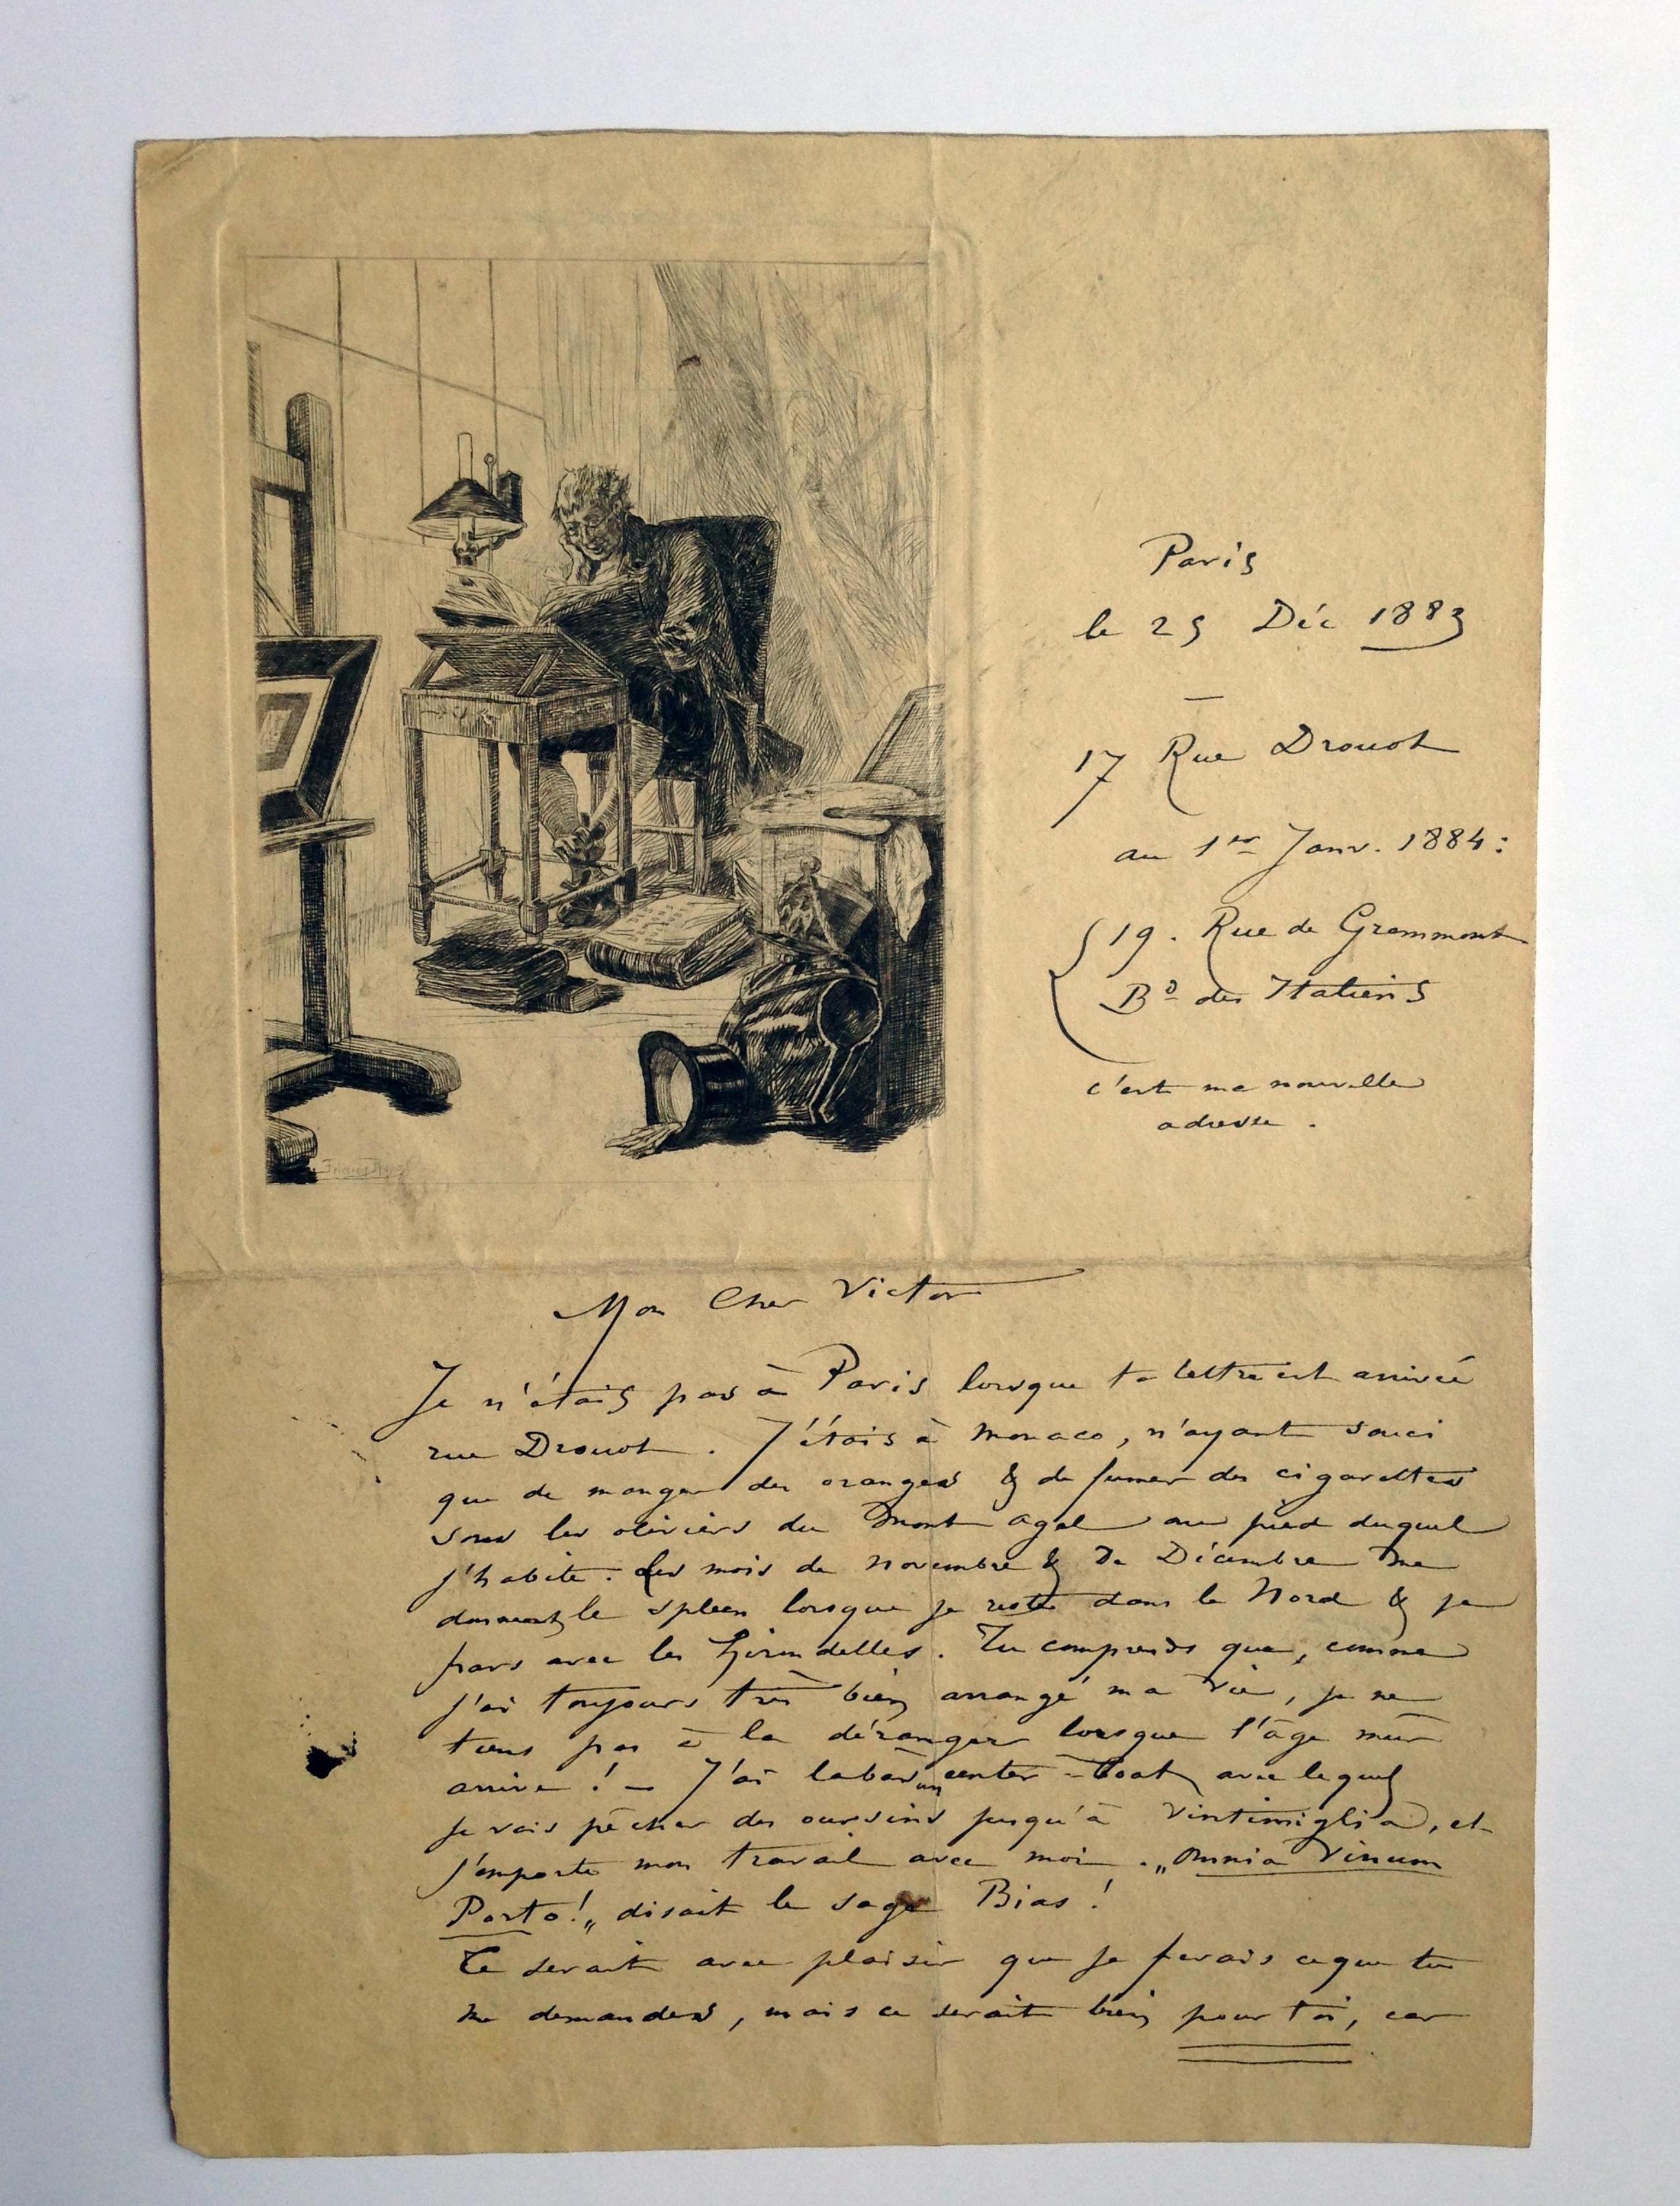 Paris
le 25 Déc 1883
—
17 Rue Drouot
au 1er Janv. 1884 :
19. Rue de Grammont
Bd des Italiens
c'est ma nouvelle
adresse.
Mon Cher Victor
Je n'étais pas à Paris lorsque ta lettre est arrivée
rue Drouot. J'étais à Monaco, n'ayant souci
que de manger des oranges & de fumer des cigarettes
sous les oliviers du Mont Agel au pied duquel
j'habite. Les mois de Novembre & De Décembre me
donnent le spleen lorsque je reste dans le Nord & je
pars avec les hirondelles. Tu comprends que, comme
j'ai toujours très bien arrangé ma vie, je ne
tiens pas à la déranger lorsque l'âge mûr
arrive ! — J'ai là bas un center-boat avec lequel
je vais pêcher des oursins jusqu'à Vintimiglia, et
j'emporte mon travail avec moi. „Omnia Vinum
Porto!„ disait le sage Bias !
Ce serait avec plaisir que je ferais ce que tu
me demandes, mais ce serait bien pour toi, car